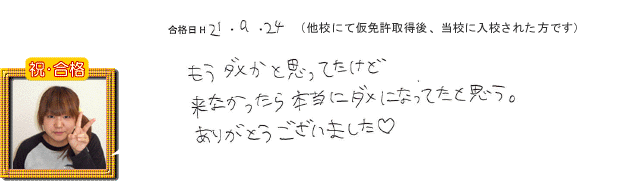 合格日H 21.9.24 (他校にて仮免許取得後、当校に入校された方です)
祝・合格
もうダメかと思ってたけど
来なかったら本当にダメになってたと思う。
ありがとうございました♡